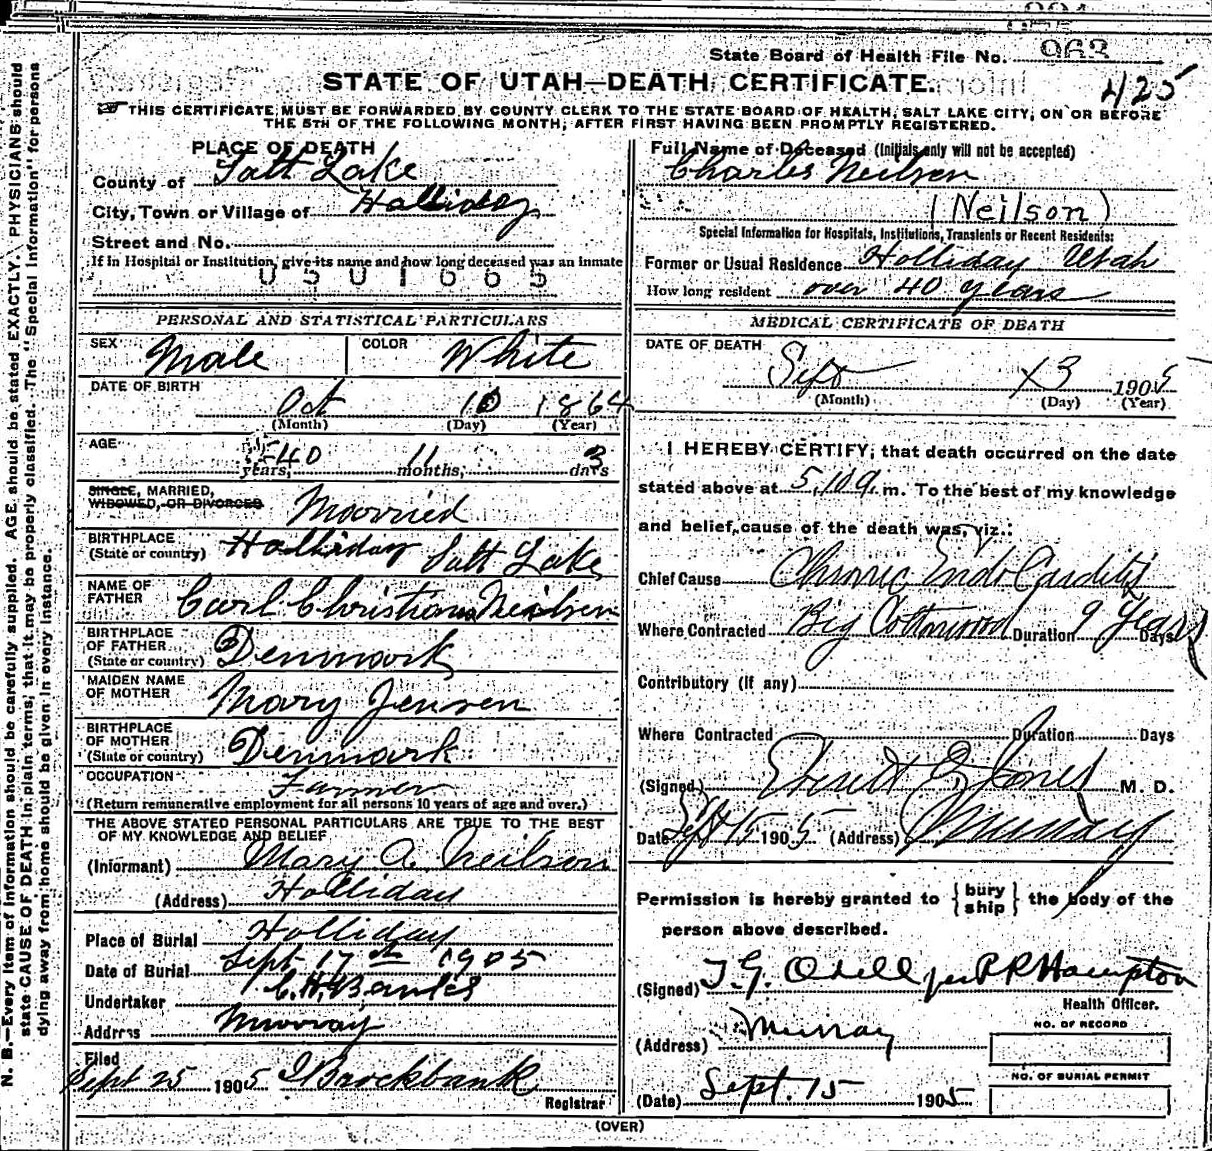 963
State Board of Health File No.
425
STATE OF UTAH—DEATH CERTIFICATE.
THIS CERTIFICATE MUST BE FORWARDED BY COUNTY CLERK TO THE STATE BOARD OF HEALTH, SALT LAKE CITY, ON OR BEFORE
THE 5TH OF THE FOLLOWING MONTH, AFTER FIRST HAVING BEEN PROMPTLY REGISTERED.
N. B.—Every item of information should be carefully supplied. AGE should be stated EXACTLY. PHYSICIANS should
state CAUSE OF DEATH in plain terms, that it may be properly classified. The "Special Information" for persons
dying away from home should be given in every instance.
PLACE OF DEATH
County of Salt Lake
City, Town or Village of Holliday
Street and No.
If in Hospital or Institution, give its name and how long deceased was an inmate
0501665
PERSONAL AND STATISTICAL PARTICULARS
SEX Male COLOR White
DATE OF BIRTH
Oct 10 1864
(Month) (Day) (Year)
AGE
40 years, 11 months, 3 days
SINGLE, MARRIED,
WIDOWED, OR DIVORCED Married
BIRTHPLACE
(State or country) Holliday Salt Lake
NAME OF
FATHER Carl Christian Neilsen
BIRTHPLACE
OF FATHER
(State or country) Denmark
MAIDEN NAME
OF MOTHER Mary Jensen
BIRTHPLACE
OF MOTHER
(State or country) Denmark
OCCUPATION Farmer
(Return remunerative employment for all persons 10 years of age and over.)
THE ABOVE STATED PERSONAL PARTICULARS ARE TRUE TO THE BEST
OF MY KNOWLEDGE AND BELIEF
(Informant) Mary A. Neilson
(Address) Holliday
Place of Burial Holliday
Date of Burial Sept 17th 1905
Undertaker
Address Murray
Filed
Sept 25 1905 Brockbank
Registrar
Full Name of Deceased (Initials only will not be accepted)
Charles Neilsen
(Neilson)
Special Information for Hospitals, Institutions, Transients or Recent Residents:
Former or Usual Residence Holliday Utah
How long resident over 40 years
MEDICAL CERTIFICATE OF DEATH
DATE OF DEATH
Sept 13 1905
(Month) (Day) (Year)
I HEREBY CERTIFY, that death occurred on the date
stated above at 5,10 a. m. To the best of my knowledge
and belief, cause of the death was, viz.:
Chief Cause Chronic Endo Carditis
Where Contracted Big Cottonwood Duration 9 Years Days
Contributory (if any)
Where Contracted Duration Days
(Signed) Jones M. D.
Date Sept 15 1905 (Address) Murray
Permission is hereby granted to {bury ship} the body of the
person above described.
(Signed) T. G. Odell per P P Hampton
Health Officer.
(Address) Murray
NO. OF RECORD
NO. OF BURIAL PERMIT
(Date) Sept. 15 1905
(OVER)